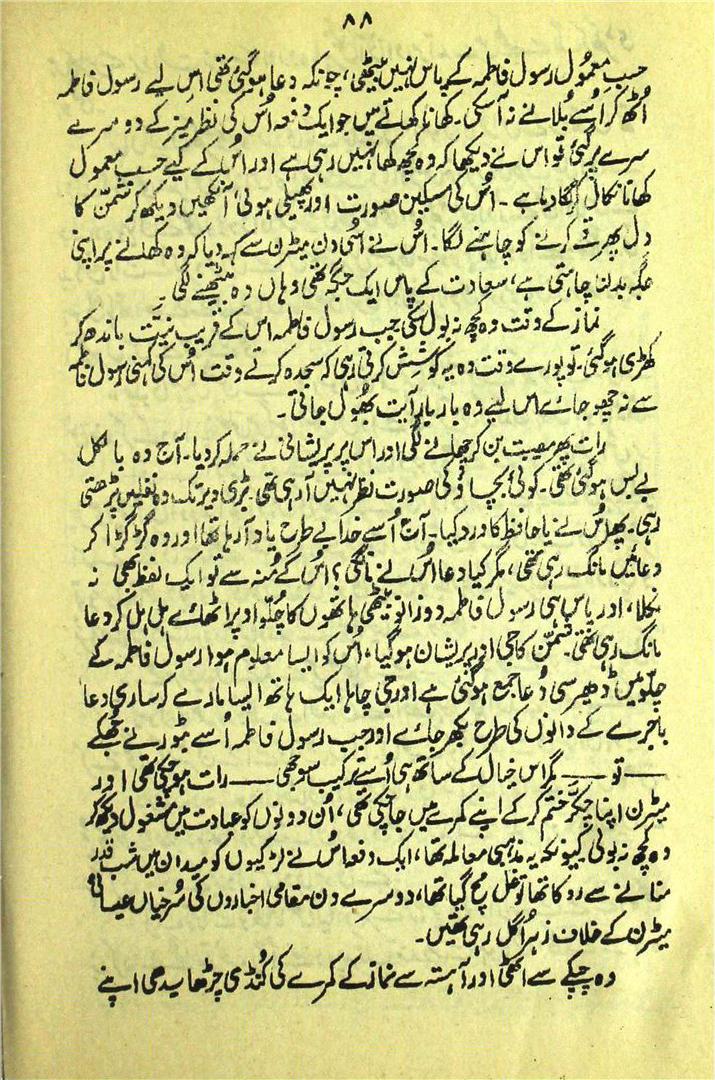 ۸۸
حسبِ معمُول رسول فاطمہ کے پاس نہیں بیٹھی، چونکہ دعا ہوگئی تھی اس لیے رسول فاطمہ
اُٹھ کر اُسے بُلانے نہ آسکی۔ کھانا کھاتے میں جو ایک دفعہ اُس کی نظر میز کے دوسرے
سرے پر گئی تو اس نے دیکھا کہ وہ کچھ کھا نہیں رہی ہے اور اُس کے لیے حسبِ معمول
کھانا نکال کر لگا دیا ہے۔ اُس کی مسکین صورت اور پھیلی ہوئی آنکھیں دیکھ کر شمن کا
دل پھر قے کرنے کو چاہنے لگا۔ اُس نے اُسی دن میٹرن سے کہہ دیا کہ وہ کھانے پر اپنی
جگہ بدلنا چاہتی ہے، سعادت کے پاس ایک جگہ تھی وہاں وہ بیٹھنے لگی۔
نماز کے وقت وہ کچھ نہ بول سکی جب رسول فاطمہ اس کے قریب نیّت باندھ کر
کھڑی ہوگئی۔ تو پورے وقت وہ یہ کوشش کرتی رہی کہ سجدہ کرتے وقت اُس کی کہنی رسول فاطمہ
سے نہ چھو جائے اس لیے وہ بار بار آیت بھُول جاتی۔
رات پھر مصیبت بن کر چھانے لگی اور اس پر پریشانی نے حملہ کر دیا۔ آج وہ بالکل
بے بس ہوگئی تھی۔ کوئی بچاؤ کی صورت نظر نہیں آرہی تھی۔ بڑی دیر تک وہ نفلیں پڑھتی
رہی۔ پھر اُس نے یا حافظ کا ورد کیا۔ آج اُسے خدا بے طرح یاد آرہا تھا اور وہ گڑگڑا کر
دعائیں مانگ رہی تھی، مگر کیا دعا اُس نے مانگی؟ اُس کے مُنہ سے تو ایک لفظ بھی نہ
نکلا، اور پاس ہی رسول فاطمہ دوزانو بیٹھی ہاتھوں کا چُلّو اوپر اٹھائے ہل ہل کر دعا
مانگ رہی تھی۔ شمن کا جی اور پریشان ہوگیا، اُس کو ایسا معلوم ہوا رسول فاطمہ کے
چلّو میں ڈھیر سی دُعا جمع ہوگئی ہے اور جی چاہا ایک ہاتھ ایسا مارے کہ ساری دعا
باجرے کے دانوں کی طرح بکھر جائے اور جب رسول فاطمہ اُسے بٹورنے جُھکے
— تو — مگر اس خیال کے ساتھ ہی اُسے ترکیب سوجھی — رات ہوچکی تھی اور
میٹرن اپنا چکّر ختم کر کے اپنے کمرے میں جاچکی تھی، اُن دونوں کو عبادت میں مشغول دیکھ کر
وہ کچھ نہ بولی کیونکہ یہ مذہبی معاملہ تھا، ایک دفعہ اُس نے لڑکیوں کو میدان میں شب قدر
منانے سے روکا تھا تو غل مچ گیا تھا، دوسرے دن مقامی اخباروں کی سُرخیاں عیسائی
میٹرن کے خلاف زہر اُگل رہی تھیں۔
وہ چپکے سے اٹھی اور آہستہ سے نماز کے کمرے کی کُنڈی چڑھا سیدھی اپنے